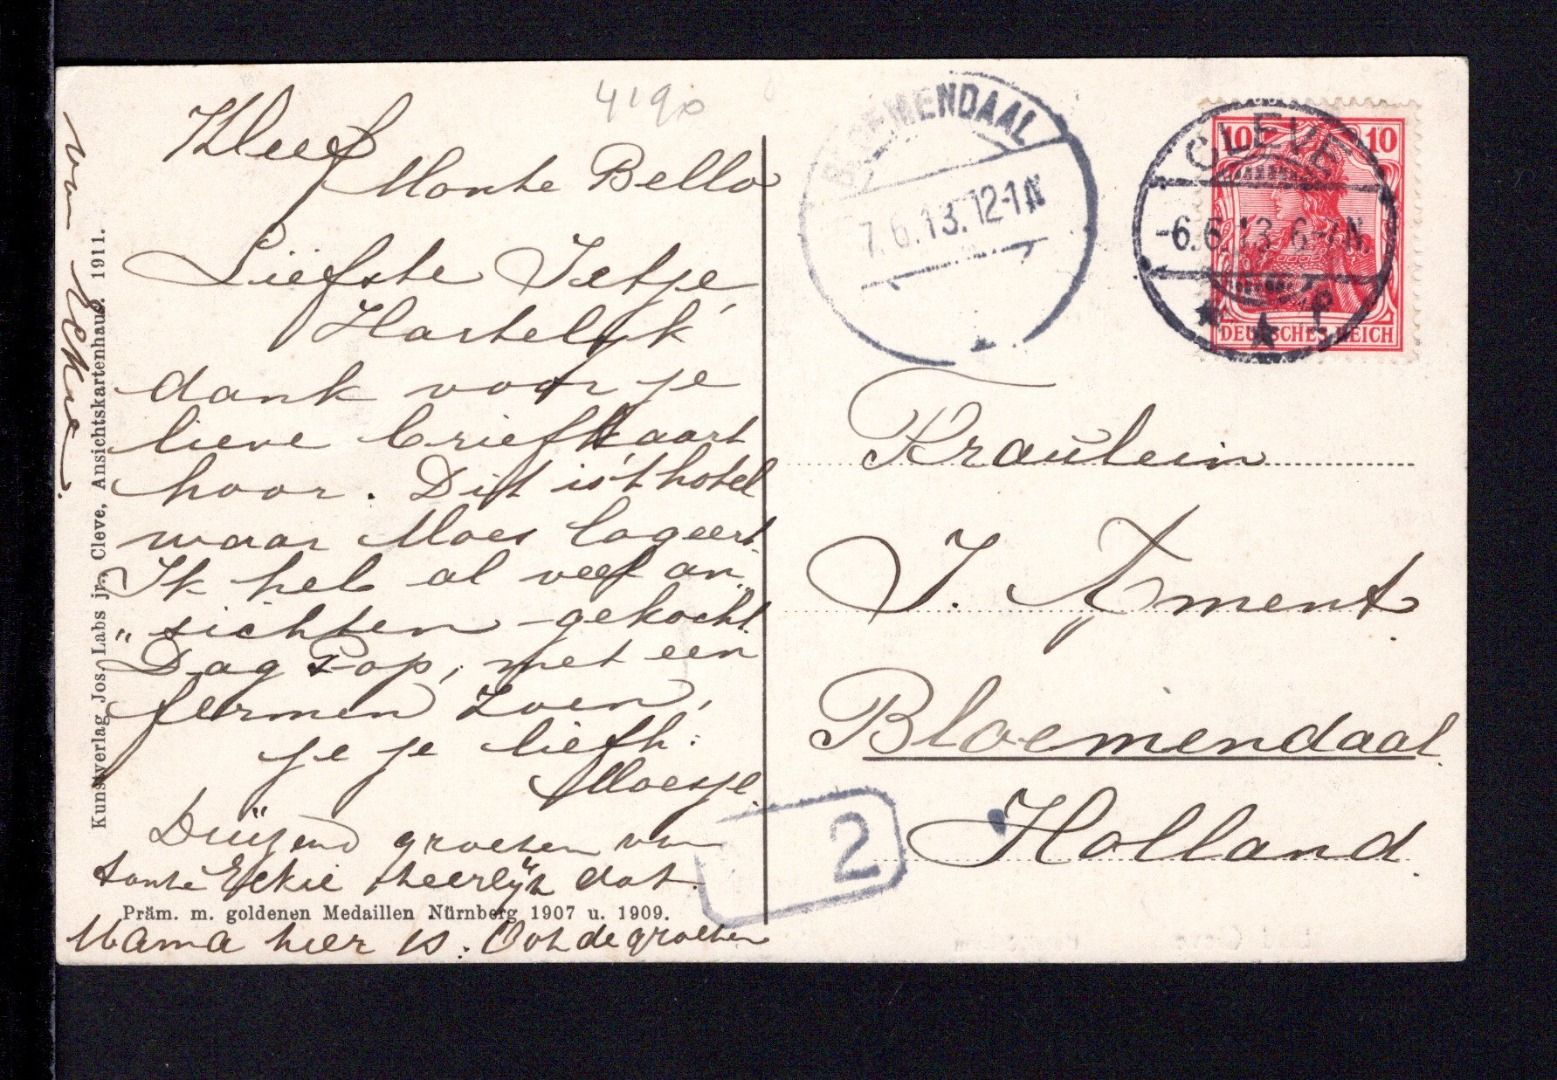 4190
Kleef
Monte Bello
Liefste Jetje,
Hartelijk
dank voor je
lieve briefkaart
hoor. Dit is 't hotel
waar Moes logeert.
Ik heb al veel an„
„sichten gekocht.
Dag Pop, met een
fermen zoen,
je je liefh:
Moesje.
Duizend groeten van
tante Eckie heerlijk dat
Mama hier is. Ook de groeten
van
Kunstverlag Jos. Labs jr., Cleve, Ansichtskartenhaus. 1911.
Präm. m. goldenen Medaillen Nürnberg 1907 u. 1909.
BLOEMENDAAL
7.6.13.12-1N
CLEVE
-6.6.13.6-7N
10 10
DEUTSCHES REICH
Fraülein
J. Ament.
Bloemendaal.
Holland.
2